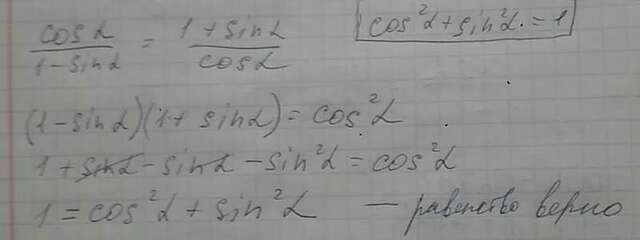 cosα/(1-sinα) = (1+sinα)/cosα
cos²α+sin²α=1
(1-sinα)(1+sinα)=cos²α
1+sinα-sinα-sin²α=cos²α
1=cos²α+sin²α — равенство верно